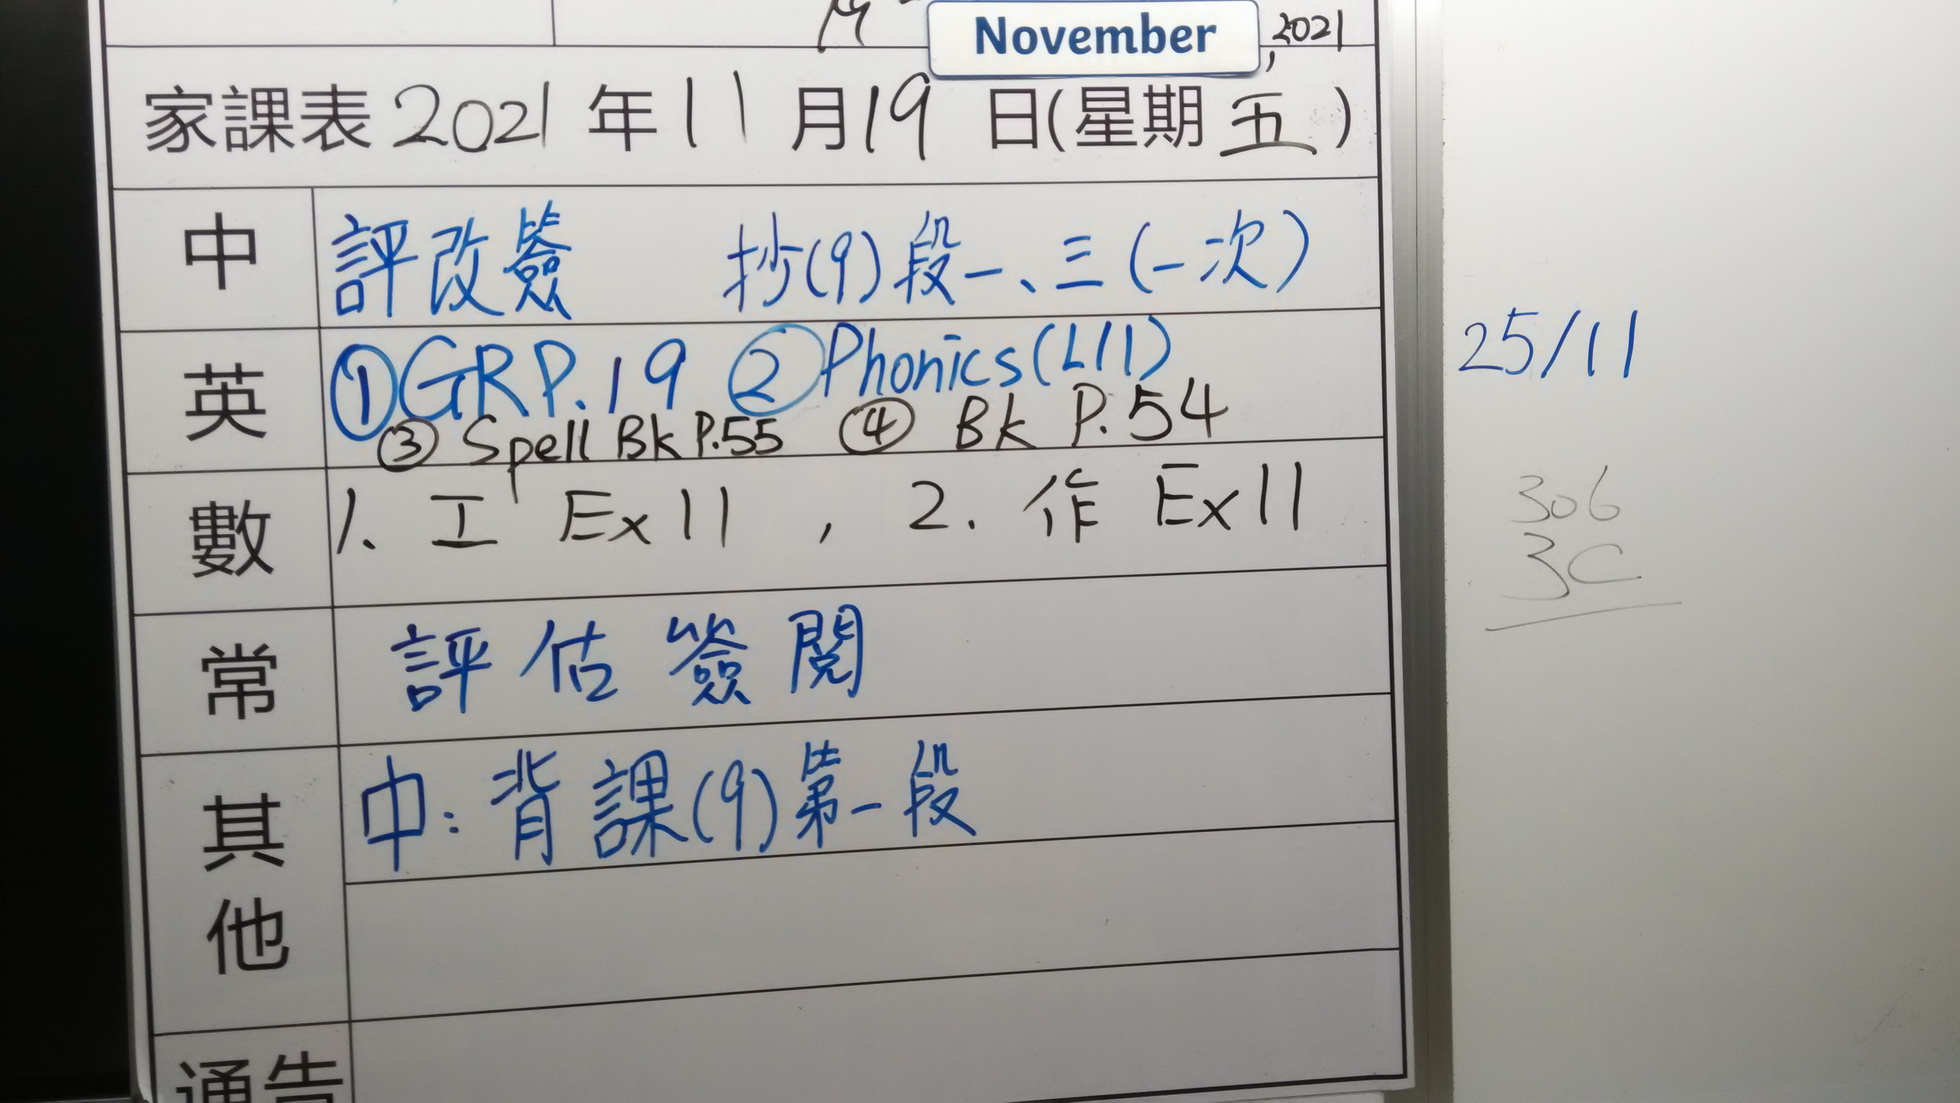 November, 2021
家課表 2021 年 11 月 19 日(星期 五 )
中 評改簽 抄(9)段一、三(一次)
英 ①GR P.19 ②Phonics(L11)
③ Spell Bk P.55 ④ Bk P.54
數 1. 工 Ex11 , 2. 作 Ex11
常 評估簽閱
其他 中:背課(9)第一段
通告
25/11
306
3C